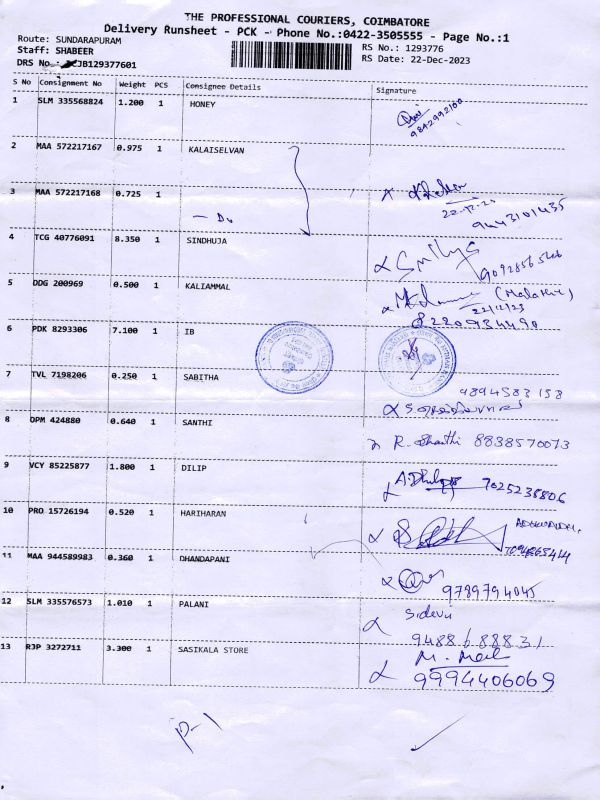 THE PROFESSIONAL COURIERS, COIMBATORE
Delivery Runsheet - PCK - Phone No.:0422-3505555 - Page No.:1
Route: SUNDARAPURAM
RS No.: 1293776
Staff: SHABEER
RS Date: 22-Dec-2023
DRS No.: JB129377601
S No Consignment No Weight PCS Consignee Details Signature
1 SLM 335568824 1.200 1 HONEY
9842992100
2 MAA 572217167 0.975 1 KALAISELVAN
3 MAA 572217168 0.725 1
22.12.23
— Do
9443101435
4 TCG 40776091 8.350 1 SINDHUJA
5 DDG 200969 0.500 1 KALIAMMAL
(Malathi)
22/12/23
8220934490
6 PDK 8293306 7.100 1 IB
7 TVL 7198206 0.250 1 SABITHA
9894583158
8 OPM 424880 0.640 1 SANTHI
R. Shanthi 8838570073
9 VCY 85225877 1.800 1 DILIP
7025238806
10 PRO 15726194 0.520 1 HARIHARAN
11 MAA 944589983 0.360 1 DHANDAPANI
9789794045
12 SLM 335576573 1.010 1 PALANI
9488688831
13 RJP 3272711 3.300 1 SASIKALA STORE
9994406069
P-1